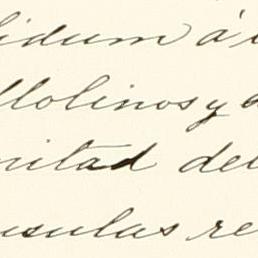 lidum á
llolinos y a
mitad del
usulas re